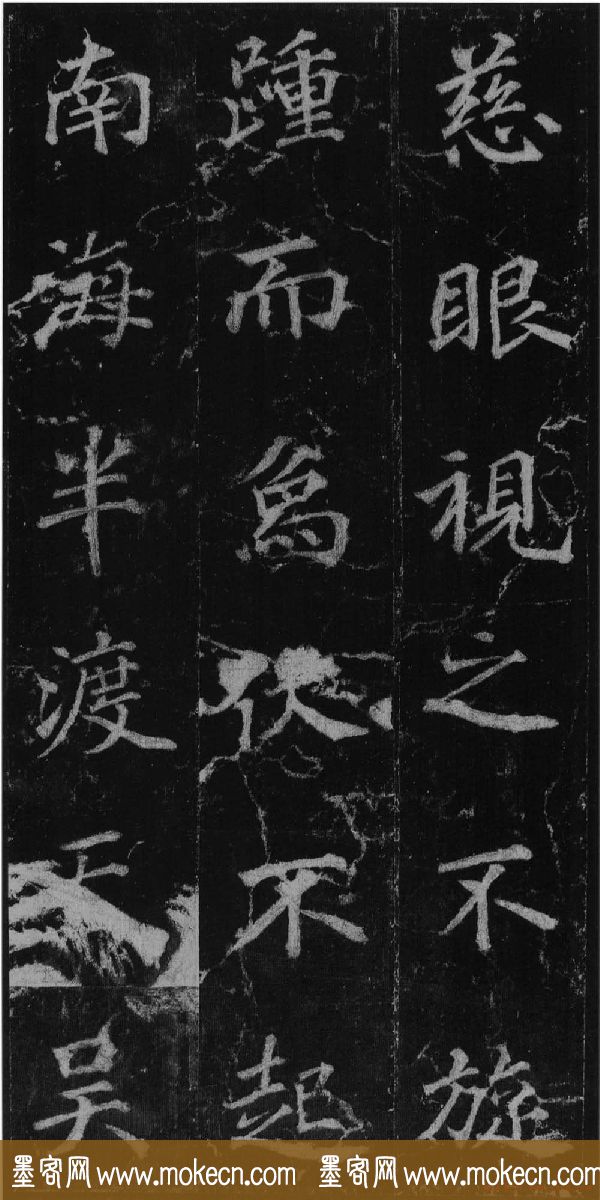 慈眼視之不旋
踵而象伏不起
南海半渡天吳
墨客网 www.mokecn.com 墨客网 www.mokecn.com